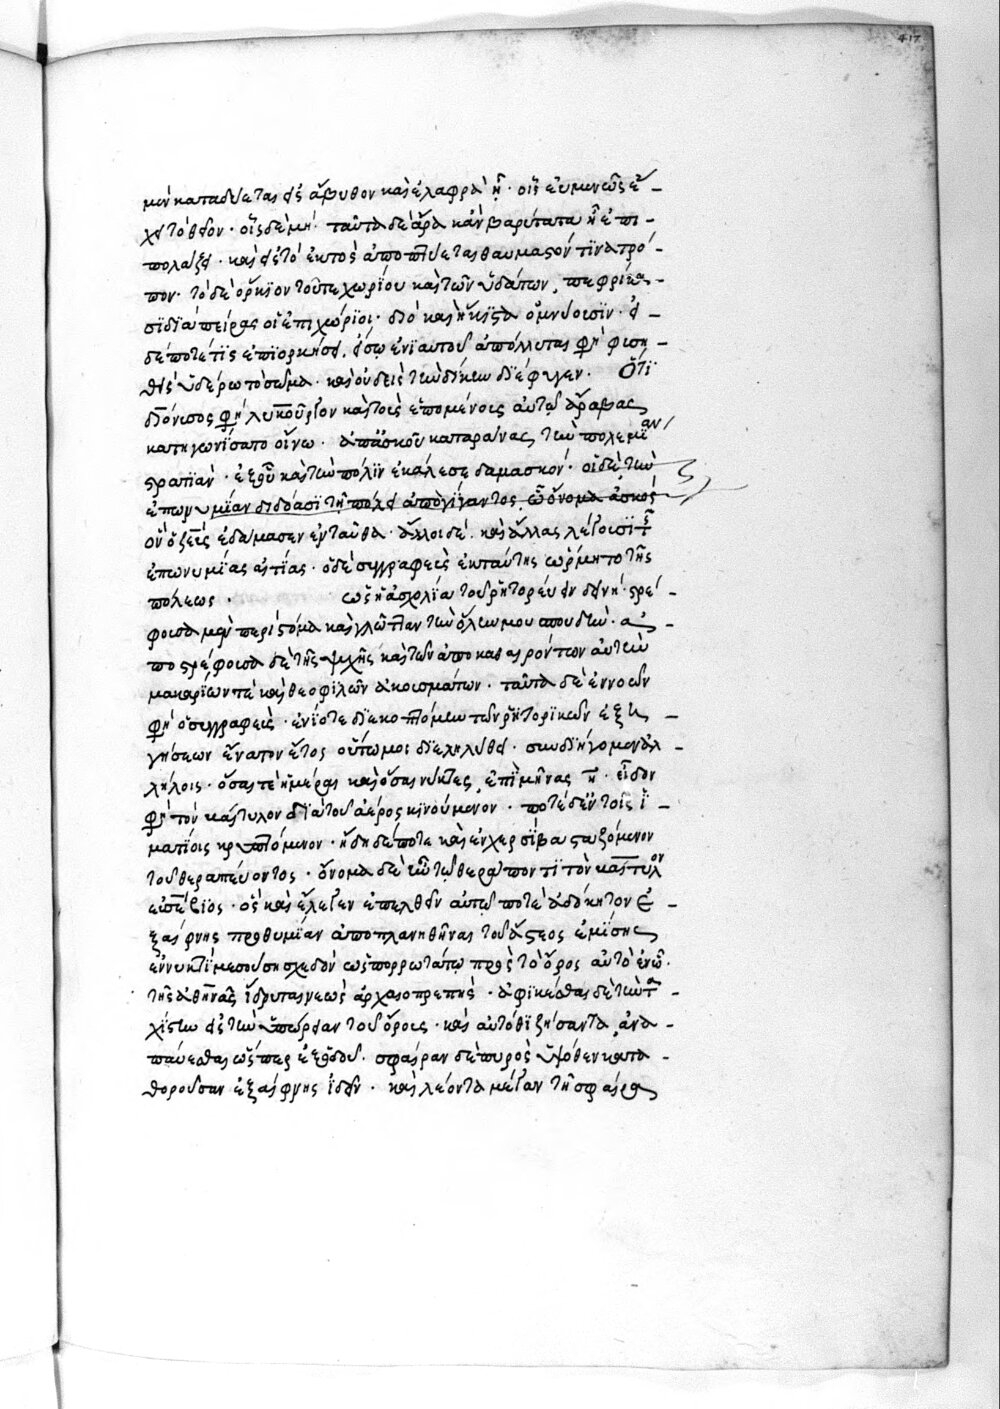 417
μὲν καταδύεται εἰς ἄβυθον κἂν ἐλαφρὰ ᾖ· οἷς εὐμενῶς ἔ–
χει τὸ θεῖον· οἷς δὲ μή· ταῦτα δὲ ἄρα κἂν βαρύτατα ᾖ ἐπι–
πολάζει· καὶ εἰς τὸ ἐκτὸς ἀποπτύεται θαυμαστόν τινα τρό–
πον· τὸ δὲ ὅρκιον τοῦ τε χωρίου καὶ τῶν ὑδάτων, πεφρίκα–
σι διὰ πείρας οἱ ἐπιχώριοι· διὸ καὶ ἥκιστα ὀμνύουσιν· εἰ–
δέποτέ τις ἐπιορκήσει, εἴσω ἐνιαυτοῦ ἀπόλλυται φη φυση–
θεὶς ὑδέρω τὸ σῶμα· καὶ οὐδεὶς τὴν δίκην διέφυγεν· Ὅτι
διόνυσος φη λυκοῦργον καὶ τοὺς ἑπομένους αὐτῷ ἄραβας
κατηγωνίσατο οἴνω· ἀπὸ ἀσκοῦ καταράνας τὴν πολεμίαν
στρατιάν· ἐξ οὗ καὶ τὴν πόλιν ἐκάλεσε δαμασκόν· οἱ δὲ τὴν
ἐπωνυμίαν διδόασι τῇ πόλει ἀπὸ γίγαντος ᾧ ὄνομα ἀσκὸς
ὃν ὁ ζεὺς ἐδάμασεν ἐνταῦθα· ἄλλοι δὲ καὶ ἄλλας λέγουσι τῆς
ἐπωνυμίας αἰτίας· ὁ δὲ συγγραφεὺς ἐκ ταύτης ὥρμητο τῆς
πόλεως· ὡς ἡ ἀσχολία τοῦ ῥητορεύειν δεινή· στρέ–
φουσα μὲν περὶ στόμα καὶ γλῶτταν τὴν ὅλην μου σπουδήν· ἀ–
ποστρέφουσα δὲ τῆς ψυχῆς καὶ τῶν ἀποκαθαιρόντων αὐτὴν
μακαρίων τὲ καὶ θεοφιλῶν ἀκουσμάτων· ταῦτα δὲ ἐννοῶν
φη ὁ συγγραφεὺς· ἐνίοτε διεκοπτόμην τῶν ῥητορικῶν ἐξη–
γήσεων ἔνατον ἔτος οὕτω μοι διελήλυθε· συνδιήγομεν ἀλ–
λήλοις· ὅσας τὲ ἡμέρας καὶ ὅσας νύκτας ἐπὶ μῆνας η· εἶδον
φη τὸν βαίτυλον διὰ τοῦ ἀέρος κινούμενον· ποτὲ δ' ἐν τοῖς ἱ–
ματίοις κρυπτόμενον· ἤδη δέ ποτε καὶ ἐν χερσὶ βασταζόμενον
τοῦ θεραπεύοντος· ὄνομα δὲ ἦν τῷ θεραπεύοντι τὸν βαίτυλον
εὐσέβιος· ὃς καὶ ἔλεγεν ἐπελθεῖν αὐτῷ ποτὲ ἀδόκητον ἐ–
ξαίφνης προθυμίαν ἀποπλανηθῆναι τοῦ ἄστεος ἐμίσης
ἐν νυκτὶ μεσούση σχεδὸν ὡς πορρωτάτω πρὸς τὸ ὄρος αὐτὸ ἐν ᾧ
τῆς ἀθηνᾶς ἵδρυται νεὼς ἀρχαιοπρεπής· ἀφικέσθαι δὲ τὴν τα–
χίστην εἰς τὴν ὑπώρειαν τοῦ ὄρους· καὶ αὐτόθι ζήσαντα ἀνα–
παύεσθαι ὥσπερ ἐξ ὁδοῦ· σφαῖραν δὲ πυρὸς ὑψόθεν κατα–
θοροῦσαν ἐξαίφνης ἰδεῖν· καὶ λέοντα μέγαν τῇ σφαίρα